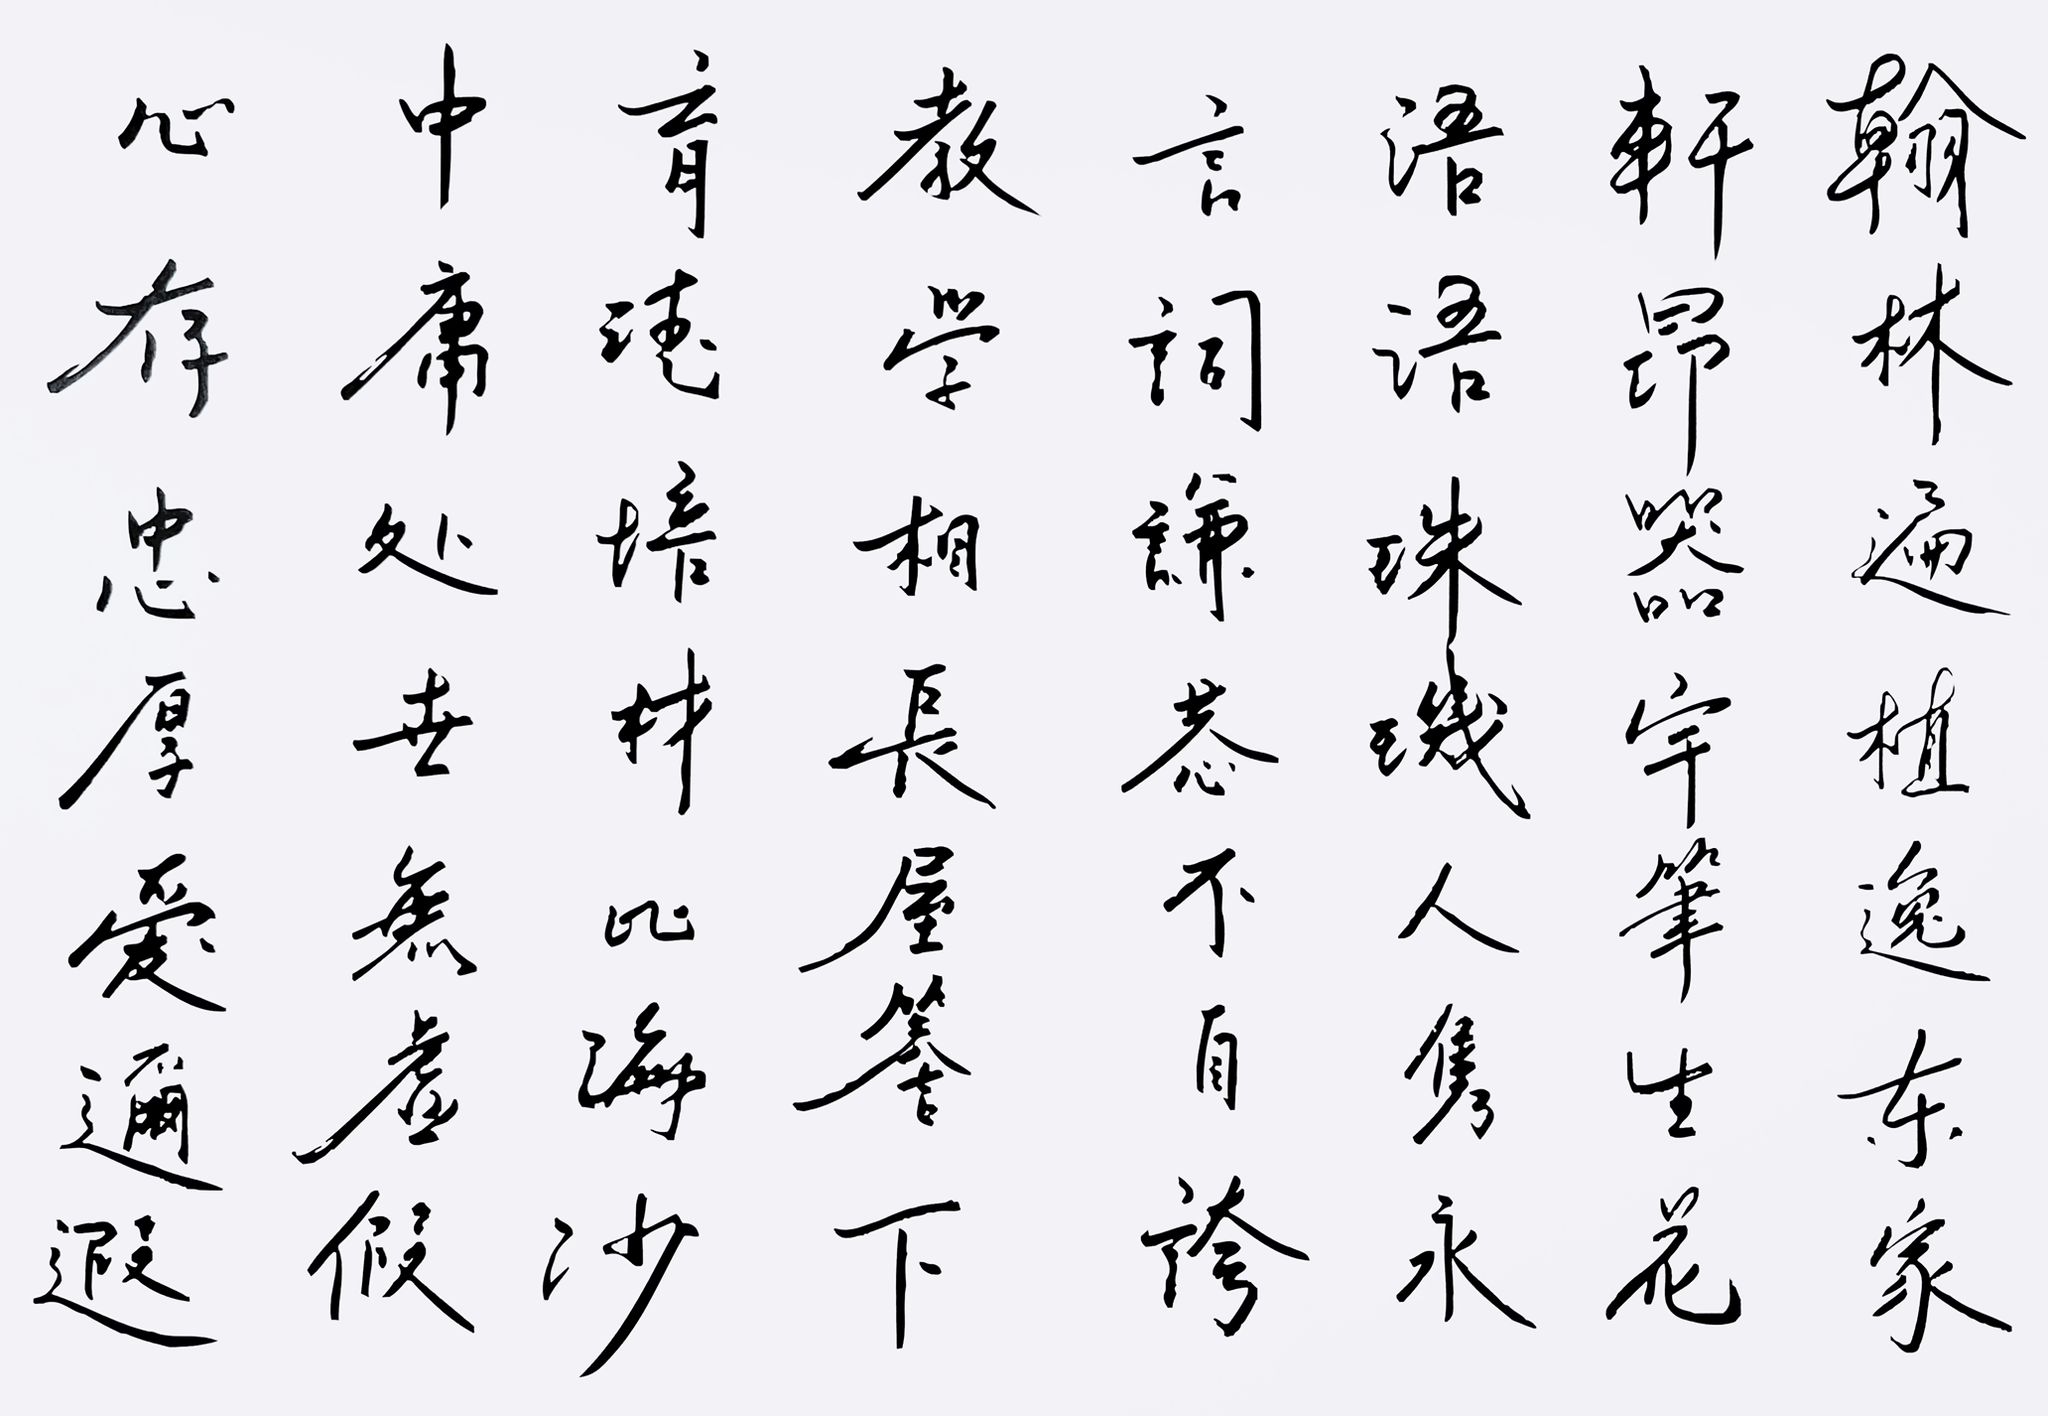 翰林遍植逸东家
軒昂器宇筆生花
语语珠璣人雋永
言詞謙恭不自誇
教學相長屋簷下
育德培材比海沙
中庸处世無虛假
心存忠厚愛邇遐